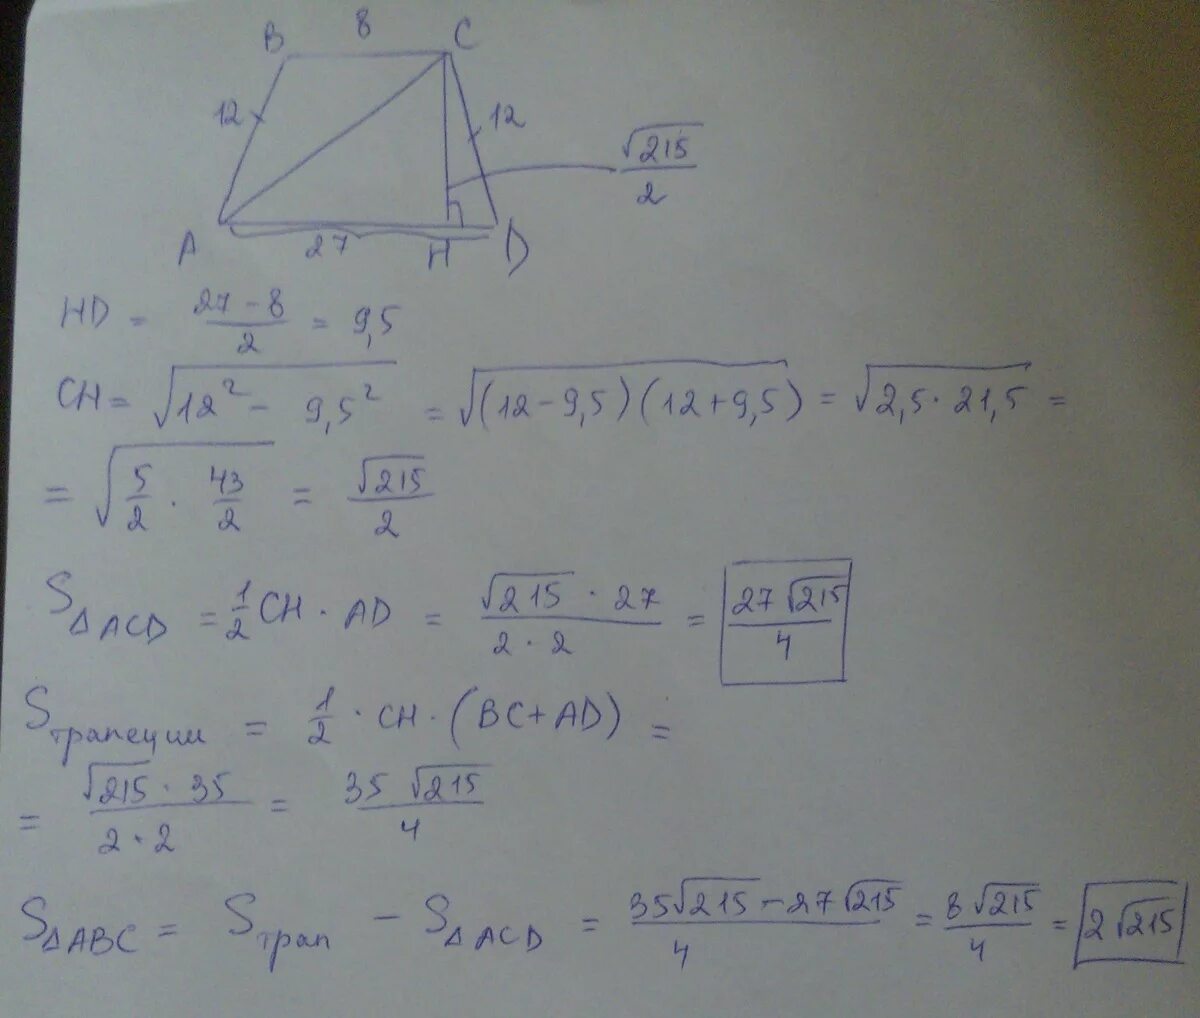 B 8 C
12 12
√215/2
A 27 H D
HD = (27 - 8)/2 = 9,5
CH = √(12² - 9,5²) = √((12-9,5)(12+9,5)) = √(2,5 · 21,5) =
= √(5/2 · 43/2) = √215/2
S△ACD = 1/2 CH · AD = (√215 · 27)/(2 · 2) = 27√215/4
Sтрапеции = 1/2 · CH · (BC+AD) =
= (√215 · 35)/(2 · 2) = 35√215/4
S△ABC = Sтрап - S△ACD = (35√215 - 27√215)/4 = 8√215/4 = 2√215